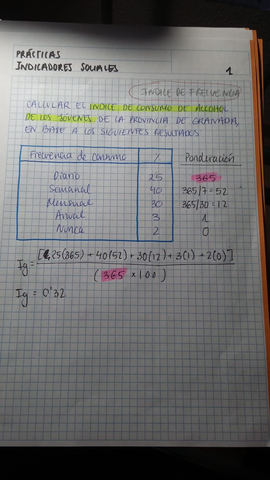 PRÁCTICAS
INDICADORES SOCIALES 1
ÍNDICE DE FRECUENCIA
CALCULAR EL ÍNDICE DE CONSUMO DE ALCOHOL
DE LOS JÓVENES DE LA PROVINCIA DE GRANADA,
EN BASE A LOS SIGUIENTES RESULTADOS
Frecuencia de consumo % Ponderación
Diario 25 365
Semanal 40 365/7 = 52
Mensual 30 365/30 = 12
Anual 3 1
Nunca 2 0
Ig = [25(365) + 40(52) + 30(12) + 3(1) + 2(0)]
(365 x 100)
Ig = 0'32